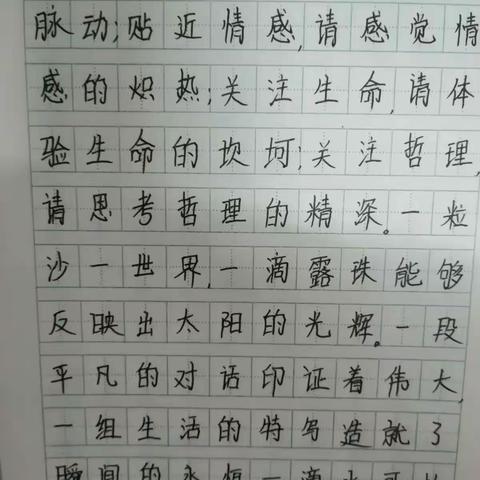 脉动;贴近情感,请感觉情
感的炽热;关注生命,请体
验生命的坎坷;关注哲理,
请思考哲理的精深。一粒
沙一世界,一滴露珠能够
反映出太阳的光辉。一段
平凡的对话印证着伟大,
一组生活的特写造就了
瞬间的永恒一滴水可